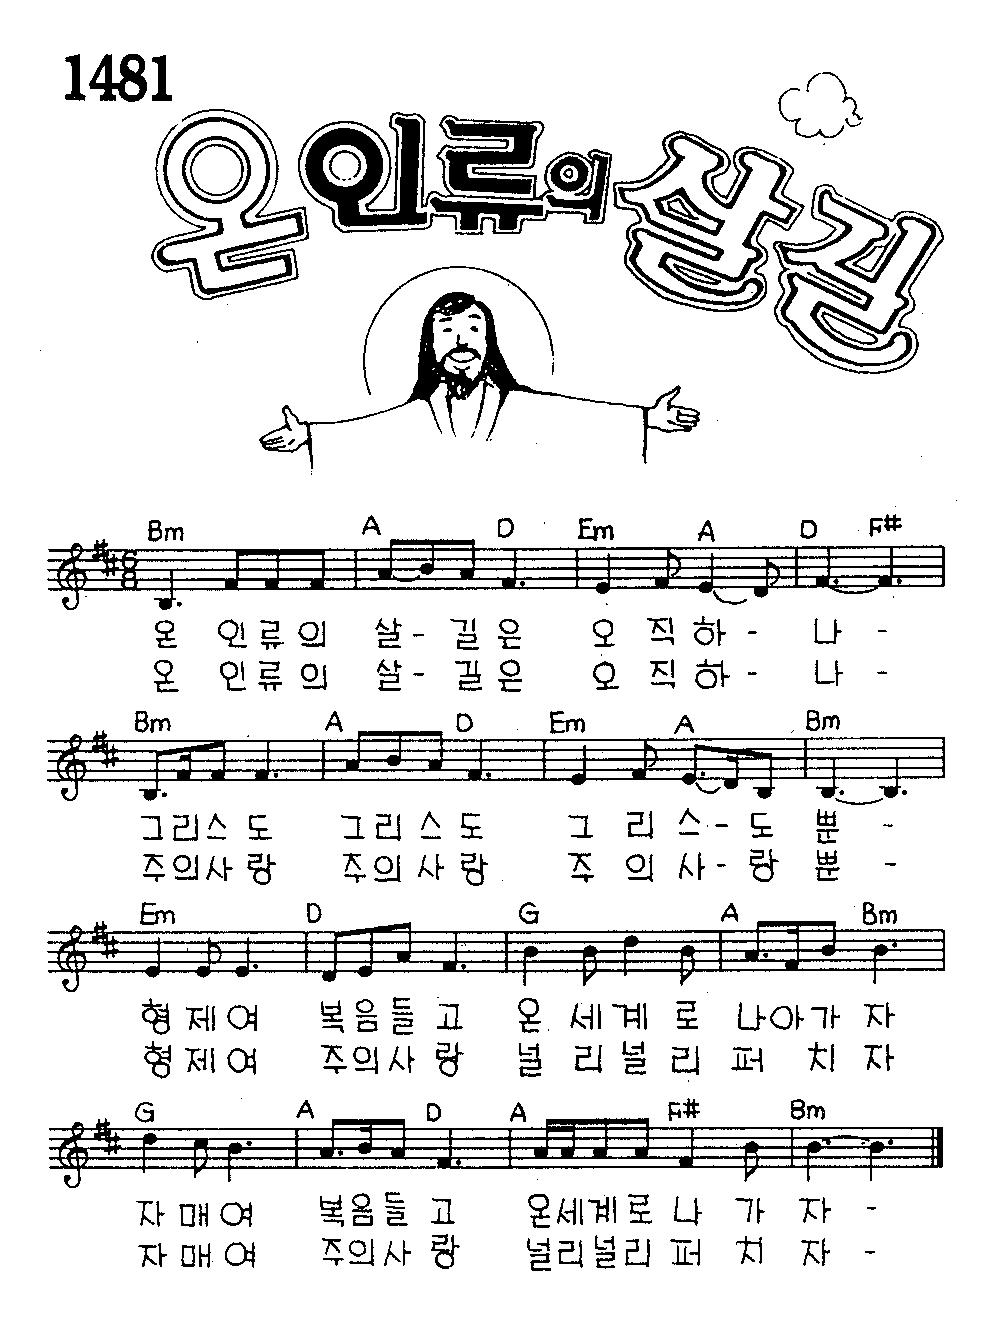 1481
온 인류의 살길
Bm A D Em A D F#
6
8
온 인류의 살- 길은 오 직하- 나 -
온 인류의 살- 길은 오 직하- 나 -
Bm A D Em A Bm
그리스도 그리스도 그 리 스-도 뿐 -
주의사랑 주의사랑 주 의 사-랑 뿐 -
Em D G A Bm
형제여 복음들고 온 세계로 나아가 자
형제여 주의사랑 널 리널리 퍼 치 자
G A D A F# Bm
자매여 복음들고 온세계로 나 가 자 -
자매여 주의사랑 널리널리 퍼 치 자 -